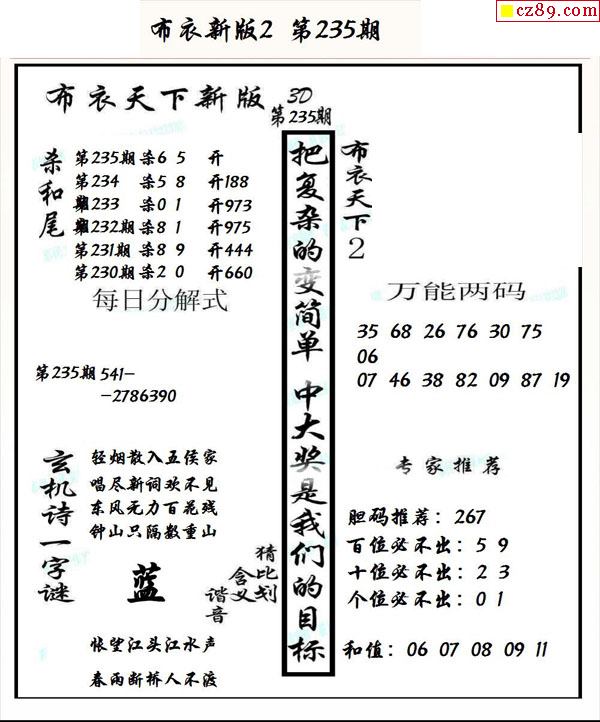 cz89.com
布衣新版2 第235期
布衣天下新版
3D
第235期
杀和尾
第235期 杀6 5 开
第234 杀5 8 开188
期233 杀0 1 开973
第232期 杀8 1 开975
第231期 杀8 9 开444
第230期 杀2 0 开660
每日分解式
第235期 541-
-2786390
玄机诗一字谜
轻烟散入五侯家
唱尽新词欢不见
东风无力百花残
钟山只隔数重山
蓝
猜比划
含义
谐音
怅望江头江水声
春雨断桥人不渡
把复杂的变简单 中大奖是我们的目标
布衣天下2
万能两码
35 68 26 76 30 75
06
07 46 38 82 09 87 19
专家推荐
胆码推荐：267
百位必不出：5 9
十位必不出：2 3
个位必不出：0 1
和值：06 07 08 09 11